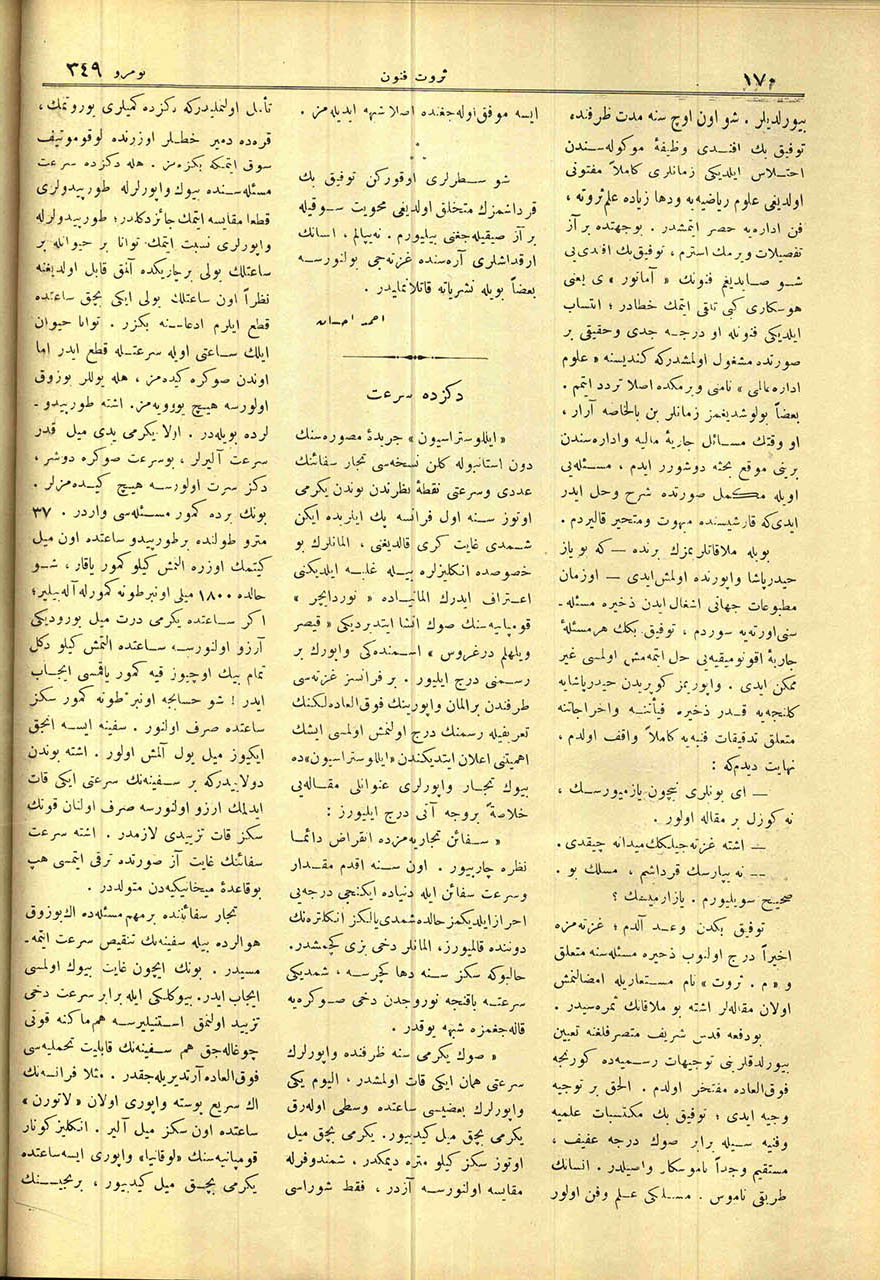 ١٧٠
ثروت فنون
نومرو ٣٤٩
بيورلديلر . شو اون اوچ سنه مدت ظرفنده
توفيق بك افندى وظيفهٔ موكوله‌سندن
اختلاس ايلديكى زمانلرى كاملاً مفتونى
اولديغى علوم رياضيه‌يه ودها زياده علم ثروته ،
فن اداره‌يه حصر ايتمشدر . بوجهتده برآز
تفصيلات ويرمك استرم ، توفيق‌بك افندى‌يى
شو صايديغم فنونك « آمانور » ى يعنى
هوسكارى كبى تلقى ايتمك خطادر ؛ انتساب
ايلديكى فنونله او درجه جدى وحقيقى بر
صورتده مشغول اولمشدركه كنديسنه « علوم
اداره عالمى » نامنى ويرمكده اصلا تردد ايتمم .
بعضاً بولوشديغمز زمانلر بن بالخاصه آرار ،
او وقتك مسائل جاريهٔ ماليه واداره‌سندن
برينى موقع بحثه دوشورر ايدم ، مسئله‌يى
اويله مكمل صورتده شرح وحل ايدر
ايدى‌كه قارشيسنده مبهوت ومتحير قاليردم .
بويله ملاقاتلريمزك برنده — كه بو ياز
حيدرپاشا واپورنده اولمش‌ايدى — اوزمان
مطبوعات جهانى اشغال ايدن ذخيره مسئله‌ـ
سنى‌اورته‌يه سوردم ، توفيق بكك هرمسئلهٔ
جاريهٔ اقونوميقيه‌يى حل ايتمه‌مش اولمسى غير
ممكن ايدى . واپوريمز كوپريدن حيدرپاشايه
كلنجه‌يه قدر ذخيره فيأتنه واخراجاتنه
متعلق تدقيقات فنيه‌يه كاملاً واقف اولدم ،
نهايت ديدم‌كه :
— اى بونلرى نيچون يازميورسك ،
نه كوزل بر مقاله اولور .
— اشته غزته‌جيلككميدانه چيقدى .
— نه يپارسك قرداشم ، مسلك بو .
صحيح سويليورم . يازارميسك ؟
توفيق بكدن وعد آلدم ؛ غزته‌مزه
اخيراً درج اولنوب ذخيره مسئله‌سنه متعلق
و « م . ثروت » نام مستعاريله امضالنمش
اولان مقاله‌لر اشته بو ملاقاتك ثمره‌سيدر .
بودفعه قدس شريف متصرفلغنه تعيين
بيورلدقلرينى توجيهات رسميه‌ده كورنجه
فوق‌العاده مفتخر اولدم . الحق بر توجيه
وجيه ايدى ؛ توفيق بك مكتسبات علميه
وفنيه سيله برابر صوك درجه عفيف ،
مستقيم وجداً ناموسكار واصيلدر . انسانك
طريقى ناموس . مسلكى علم وفن اولور
ايسه موفق اوله‌جغنده اصلا شبهه ايديله‌مز .
شو سطرلرى اوقوركن توفيق بك
قرداشمزك متخلق اولديغى محويت سوقيله
بر آز صيقيله‌جغنى بيليورم . نه‌يپالم ، انسانك
ارقداشلرى آره‌سنده غزته‌جى بولنورسه
بعضاً بويله نشرياته قاتلانمليدر .
احمد احسان
دكزده سرعت
« ايللوستراسيون » جريدهٔ مصوره‌سنك
دون استانبوله كلن نسخه‌سى تجار سفائننك
عددى وسرعتى نقطهٔ نظرندن بوندن يكرمى
اوتوز سنه اول فرانسه پك ايلريده ايكن
شمدى غايت كرى قالديغنى ، المانلرك بو
خصوصده انكليزلره بيله غلبه ايلديكنى
اعتراف ايدرك المانياده « نوردايچر »
قومپانيه‌سنك صوك انشا ايتديرديكى « قيصر
ويلهلم درغروس » اسمنده‌كى واپورك بر
رسمنى درج ايليور . بر فرانسز غزته‌سى
طرفندن برالمان واپورينك فوق‌العاده‌لكنك
تعريفيله رسمنك درج اولنمش اولمسى ايشك
اهميتنى اعلان ايتديكندن «ايللوستراسيون»ده
بيوك تجار واپورلرى عنوانلى مقاله‌يى
خلاصةً بروجه آتى درج ايليورز :
« سفائن تجاريه‌مزده انقراض دائما
نظره چارپيور . اون سنه اقدم مقدار
وسرعت سفائن ايله دنياده ايكنجى درجه‌يى
احرازايلديكمز حالده‌شمدى‌يالكز انكلتره‌نك
دوننده قالميورز، المانلر دخى بزى كچمشدر.
حالبوكه سكز سنه دها كچرسه ، شمديكى
سرعته باقنجه نوروجدن دخى صوكره‌يه
قاله‌جغمزه شبهه يوقدر .
« صوك يكرمى سنه ظرفنده واپورلرك
سرعتى همان ايكى قات اولمشدر ، اليوم يكى
واپورلرك بعضيسى ساعتده وسطى اوله‌رق
يكرمى بچق ميل كيديور. يكرمى بچق ميل
اوتوز سكز كيلو متره ديمكدر ، شمندوفرله
مقايسه اولنورسه آزدر ، فقط شوراسى
تأمل اولنمليدركه دكزده كميلرى يوروتمك ،
قره‌ده دمير خطلر اوزرنده لوقوموتيف
سوق ايتمكه بكزه‌مز . هله دكزده سرعت
مسئله‌سنده بيوك واپورلرله طورپيدولرى
قطعا مقايسه ايتمك جائزدكلدر؛ طورپيدولرله
واپورلرى نسبت ايتمك توانا بر حيوانله بر
ساعتلك يولى برچاريكده آلمق قابل اولديغنه
نظراً اون ساعتلك يولى ايكى بچق ساعتده
قطع ايلرم ادعاسنه بكزر . توانا حيوان
ايلك ساعتى اويله سرعتله قطع ايدر اما
اوندن صوكره كيده‌مز ، هله يوللر بوزوق
اولورسه هيچ يورويه‌مز. اشته طورپيدوـ
لرده بويله‌در . اولا يكرمى يدى ميل قدر
سرعت آليرلر ، بوسرعت صوكره دوشر ،
دكز سرت اولورسه هيچ كيده‌مزلر .
بونك برده كمور مسئله‌سى واردر . ٣٧
مترو طولنده برطورپيدو ساعتده اون ميل
كيتمك اوزره التمش كيلو كمور ياقار ، شو
حالده ١٨٠٠ ميلى اونبرطونه كمورله آله‌بيلير؛
اكر ساعتده يكرمى درت ميل يوروديكى
آرزو اولنورسه ساعتده التمش كيلو دكل
تمام بيك اوچيوز قيه كمور ياقمسى ايجاب
ايدر ! شو حسابجه اونبر طونه كمور سكز
ساعتده صرف اولنور . سفينه ايسه انجق
ايكيوز ميل يول آلمش اولور . اشته بوندن
دولاييدركه بر سفينه‌نك سرعتى ايكى قات
ايدلمك ارزو اولنورسه صرف اولنان قوتك
سكز قات تزييدى لازمدر . اشته سرعت
سفائنك غايت آز صورتده ترقى ايتمسى هپ
بوقاعدهٔ ميخانيكيه‌دن متولددر .
تجار سفائننده برمهم مسئله‌ده اك‌بوزوق
هوالرده بيله سفينه‌نك تنقيص سرعت ايتمه‌ـ
مسيدر . بونك ايچون غايت بيوك اولمسى
ايجاب ايدر. بيوكلكى ايله برابر سرعت دخى
تزييد اولنمق استنيليرسه هم‌ماكنه قوتى
چوغاله‌جق هم سفينه‌نك قابليت تحمليه‌سى
فوق‌العاده آرتديريله‌جقدر . مثلا فرانسه‌نك
اك سريع پوسته واپورى اولان « لاتورن »
ساعتده اون سكز ميل آلير . انكليزكونار
قومپانيه‌سنك «لوقانيا» واپورى ايسه‌ساعتده
يكرمى بچق ميل كيديور ، برنجينك